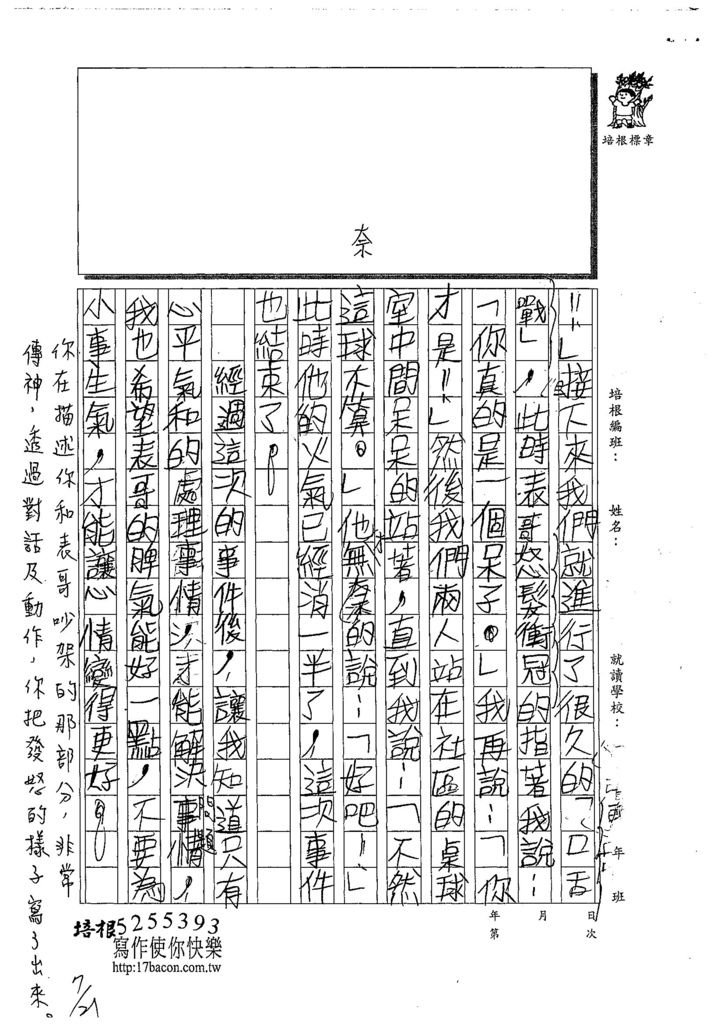 培根標章
奈
培根編班：
姓名：
就讀學校：
年 班
‥」接下來我們就進行了很久的「口舌
戰」，此時表哥怒髮衝冠的指著我說：
「你真的是一個呆子。」我再說：「你
才是‥」然後我們兩人站在社區的桌球
室中間呆呆的站著，直到我說：「不然
這球不算。」他無奈的說：「好吧！」
此時他的火氣已經消一半了，這次事件
也結束了。
經過這次的事件後，讓我知道只有
心平氣和的處理事情，才能解決事情，
問題
我也希望表哥的脾氣能好一點，不要為
小事生氣，才能讓心情變得更好。
你在描述你和表哥吵架的那部分，非常
傳神，透過對話及動作，你把發怒的樣子寫了出來。
7/21
年 月 日
第 次
培根5255393
寫作使你快樂
http:17bacon.com.tw